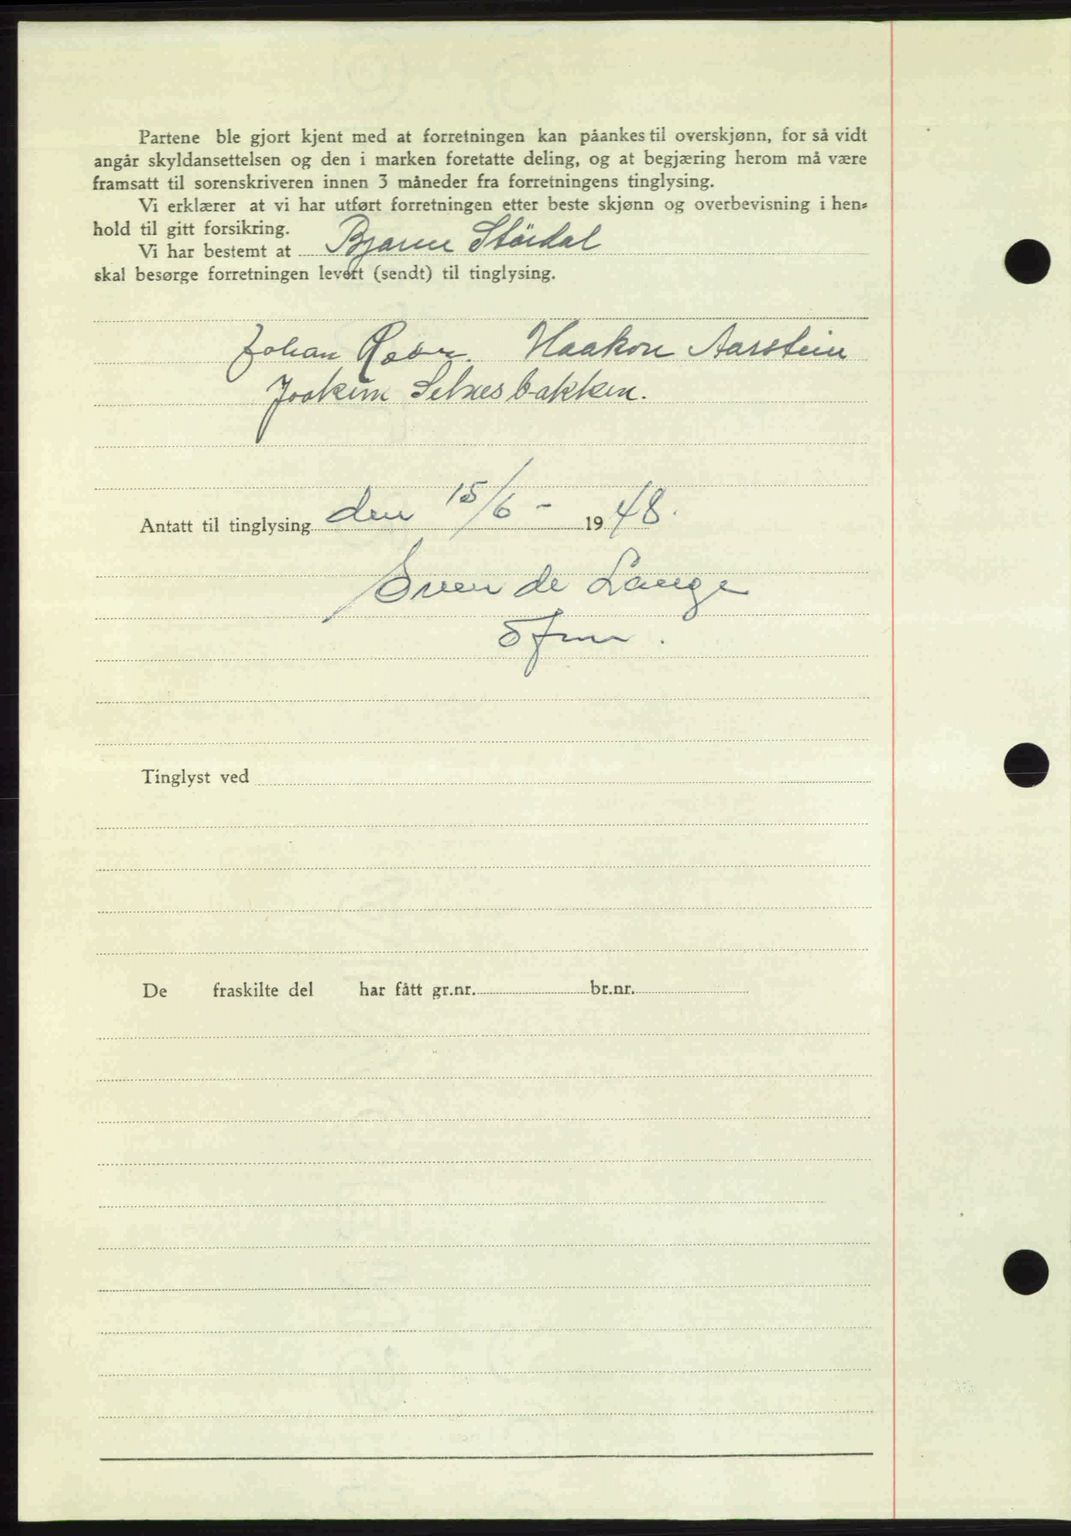 Partene ble gjort kjent med at forretningen kan påankes til overskjønn, for så vidt
angår skyldansettelsen og den i marken foretatte deling, og at begjæring herom må være
framsatt til sorenskriveren innen 3 måneder fra forretningens tinglysing.
Vi erklærer at vi har utført forretningen etter beste skjønn og overbevisning i hen-
hold til gitt forsikring.
Vi har bestemt at Bjarne Stördal
skal besørge forretningen levert (sendt) til tinglysing.
Johan Haakon Aarstein
Joakim Selnesbakken.
Antatt til tinglysing den 15/6 - 1948.
Sven de Lange
Tinglyst ved
De fraskilte del har fått gr.nr. br.nr.